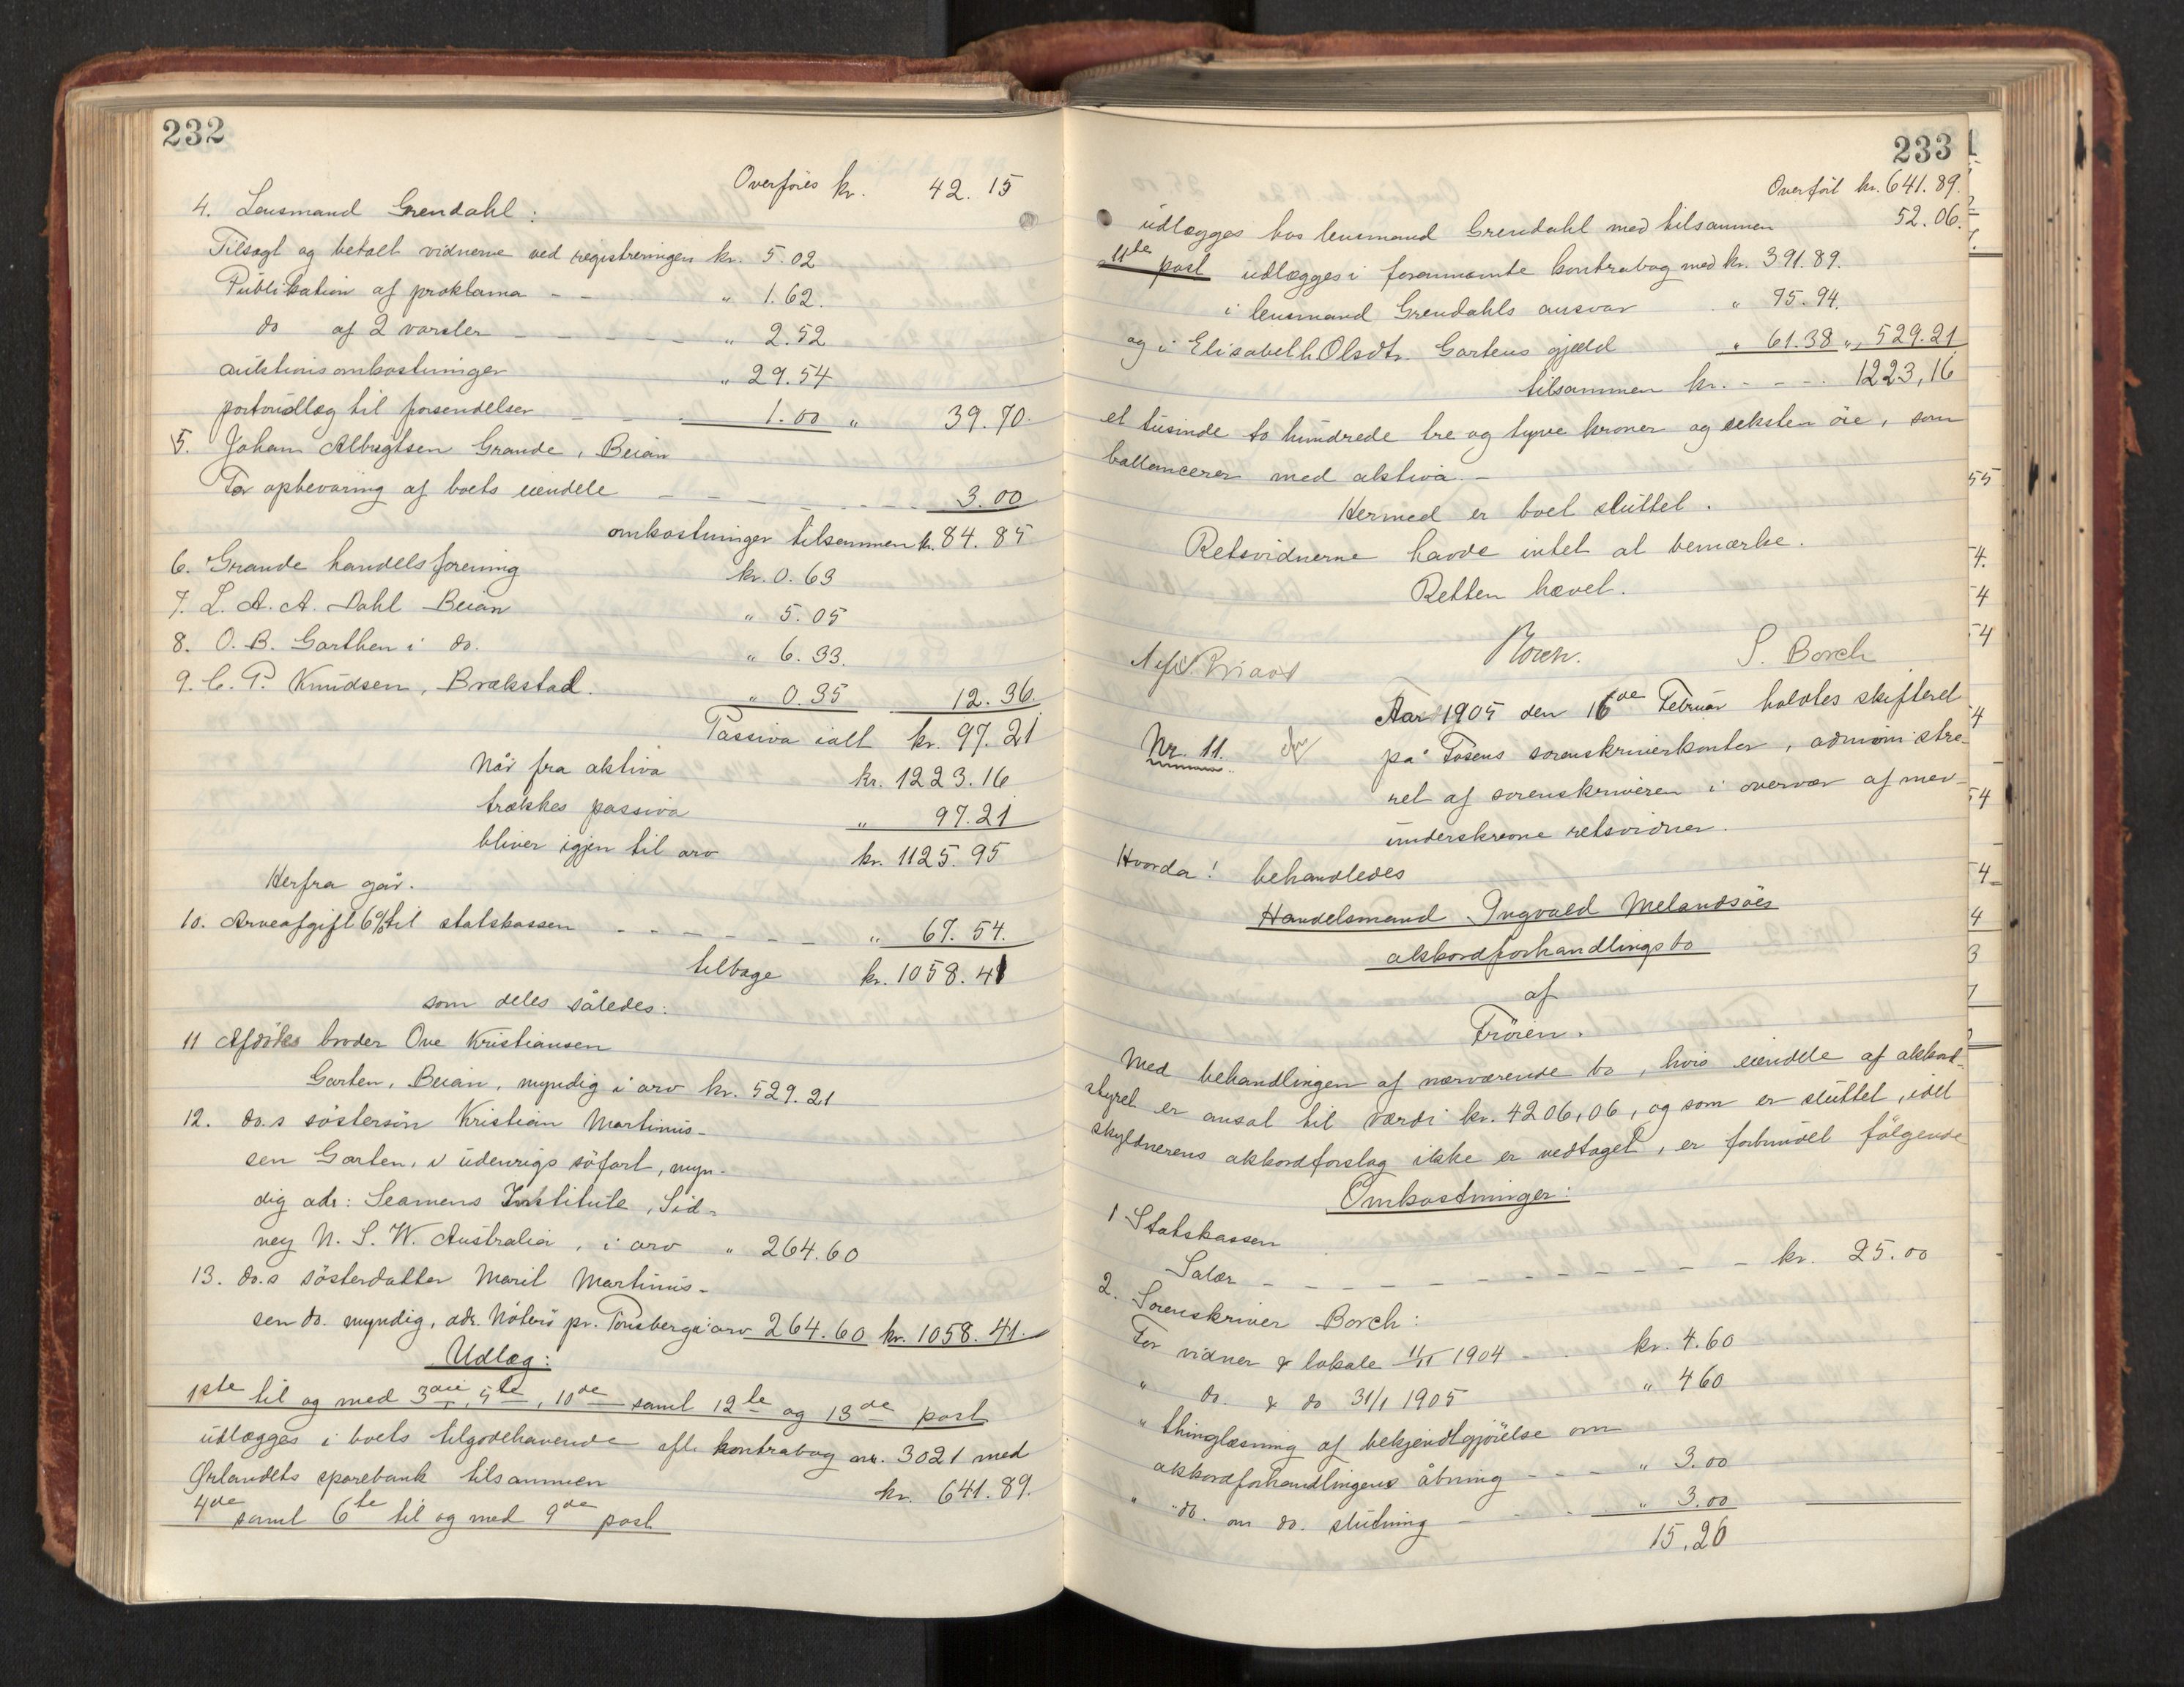 232
Overføres kr. 42.15
4. Lensmand Grendahl:
Tilsagt og betalt vidnerne ved registreringen kr. 5.02
Publikation af proklama - - " 1.62.
do af 2 varsler - - - - - " 2.52
auktionsomkostninger " 29.54
portoudlæg til forsendelser - - - 1.00 " 39.70.
5. Johan Albregtsen Grande, Beian
For opbevaring af boets eiendele - - - - - 3.00
omkostninger tilsammen kr. 84.85
6. Grande handelsforening kr. 0.63
7. L. A. A. Dahl Beian " 5.05
8. O. B. Garthen i do. " 6.33.
9. C. P. Knudsen, Brækstad. " 0.35 12.36.
Passiva ialt kr. 97.21
Når fra aktiva kr. 1223.16
trækkes passiva " 97.21
bliver igjen til arv kr. 1125.95
Herfra går.
10. Arveafgift 6% til statskassen - - - - - - " 67.54.
tilbage kr. 1058.41
som deles således:
11 Afdødes broder Ove Kristiansen
Garten, Beian, myndig i arv kr. 529.21
12. do.s søstersøn Kristian Martinus-
sen Garten, i udenrigs søfart, myn-
dig adr: Seamens Institute, Sid-
ney N. S. W. Australia, i arv " 264.60
13. do.s søsterdatter Marit Martinus-
sen do. myndig, adr. Nøterø pr. Tønsberg i arv 264.60 kr. 1058.41.
Udlæg:
1ste til og med 3die, 5te, 10de samt 12te og 13de post
udlægges i boets tilgodehavende efter kontrabog nr. 3021 med
Ørlandets sparebank tilsammen kr. 641.89.
4de samt 6te til og med 9de post
233
Overført kr. 641.89.
udlægges hos lensmand Grendahl med tilsammen 52.06.
11te post udlægges i forannævnte kontrabog med kr. 391.89.
i lensmand Grendahls ansvar " 75.94.
og i Elisabeth Olsdtr. Gartens gjæld " 61.38 " 529.21
tilsammen kr. - - - 1223,16
et tusinde to hundrede tre og tyve kroner og seksten øre, som
ballancerer med aktiva.-
Hermed er boet sluttet.
Retsvidnerne havde intet at bemærke.
Retten hævet.
Borch. S. Borch
Nr. 11.
Aar 1905 den 16de Februar holdtes skifteret
på Fosens sorenskriverkontor, administre-
ret af sorenskriveren i overvær af med-
underskrevne retsvidner.
Hvorda! behandledes
Handelsmand Ingvald Melandsøes
akkordforhandlingsbo
af
Frøien.
Med behandlingen af nærværende bo, hvis eiendele af akkord-
styret er ansat til værdi kr. 4206,06, og som er sluttet, idet
skyldnerens akkordforslag ikke er vedtaget, er forbundet følgende
Omkostninger:
1 Statskassen
Salær - - - - - - - - - - kr. 25.00
2. Sorenskriver Borch:
For vidner & lokale 11/11 1904 - - kr. 4.60
" do. & do 31/1 1905 " 4.60
" thinglæsning af bekjendtgjørelse om
akkordforhandlingens åbning - - - " 3.00
" do. om do. slutning - - - " 3.00
15.20